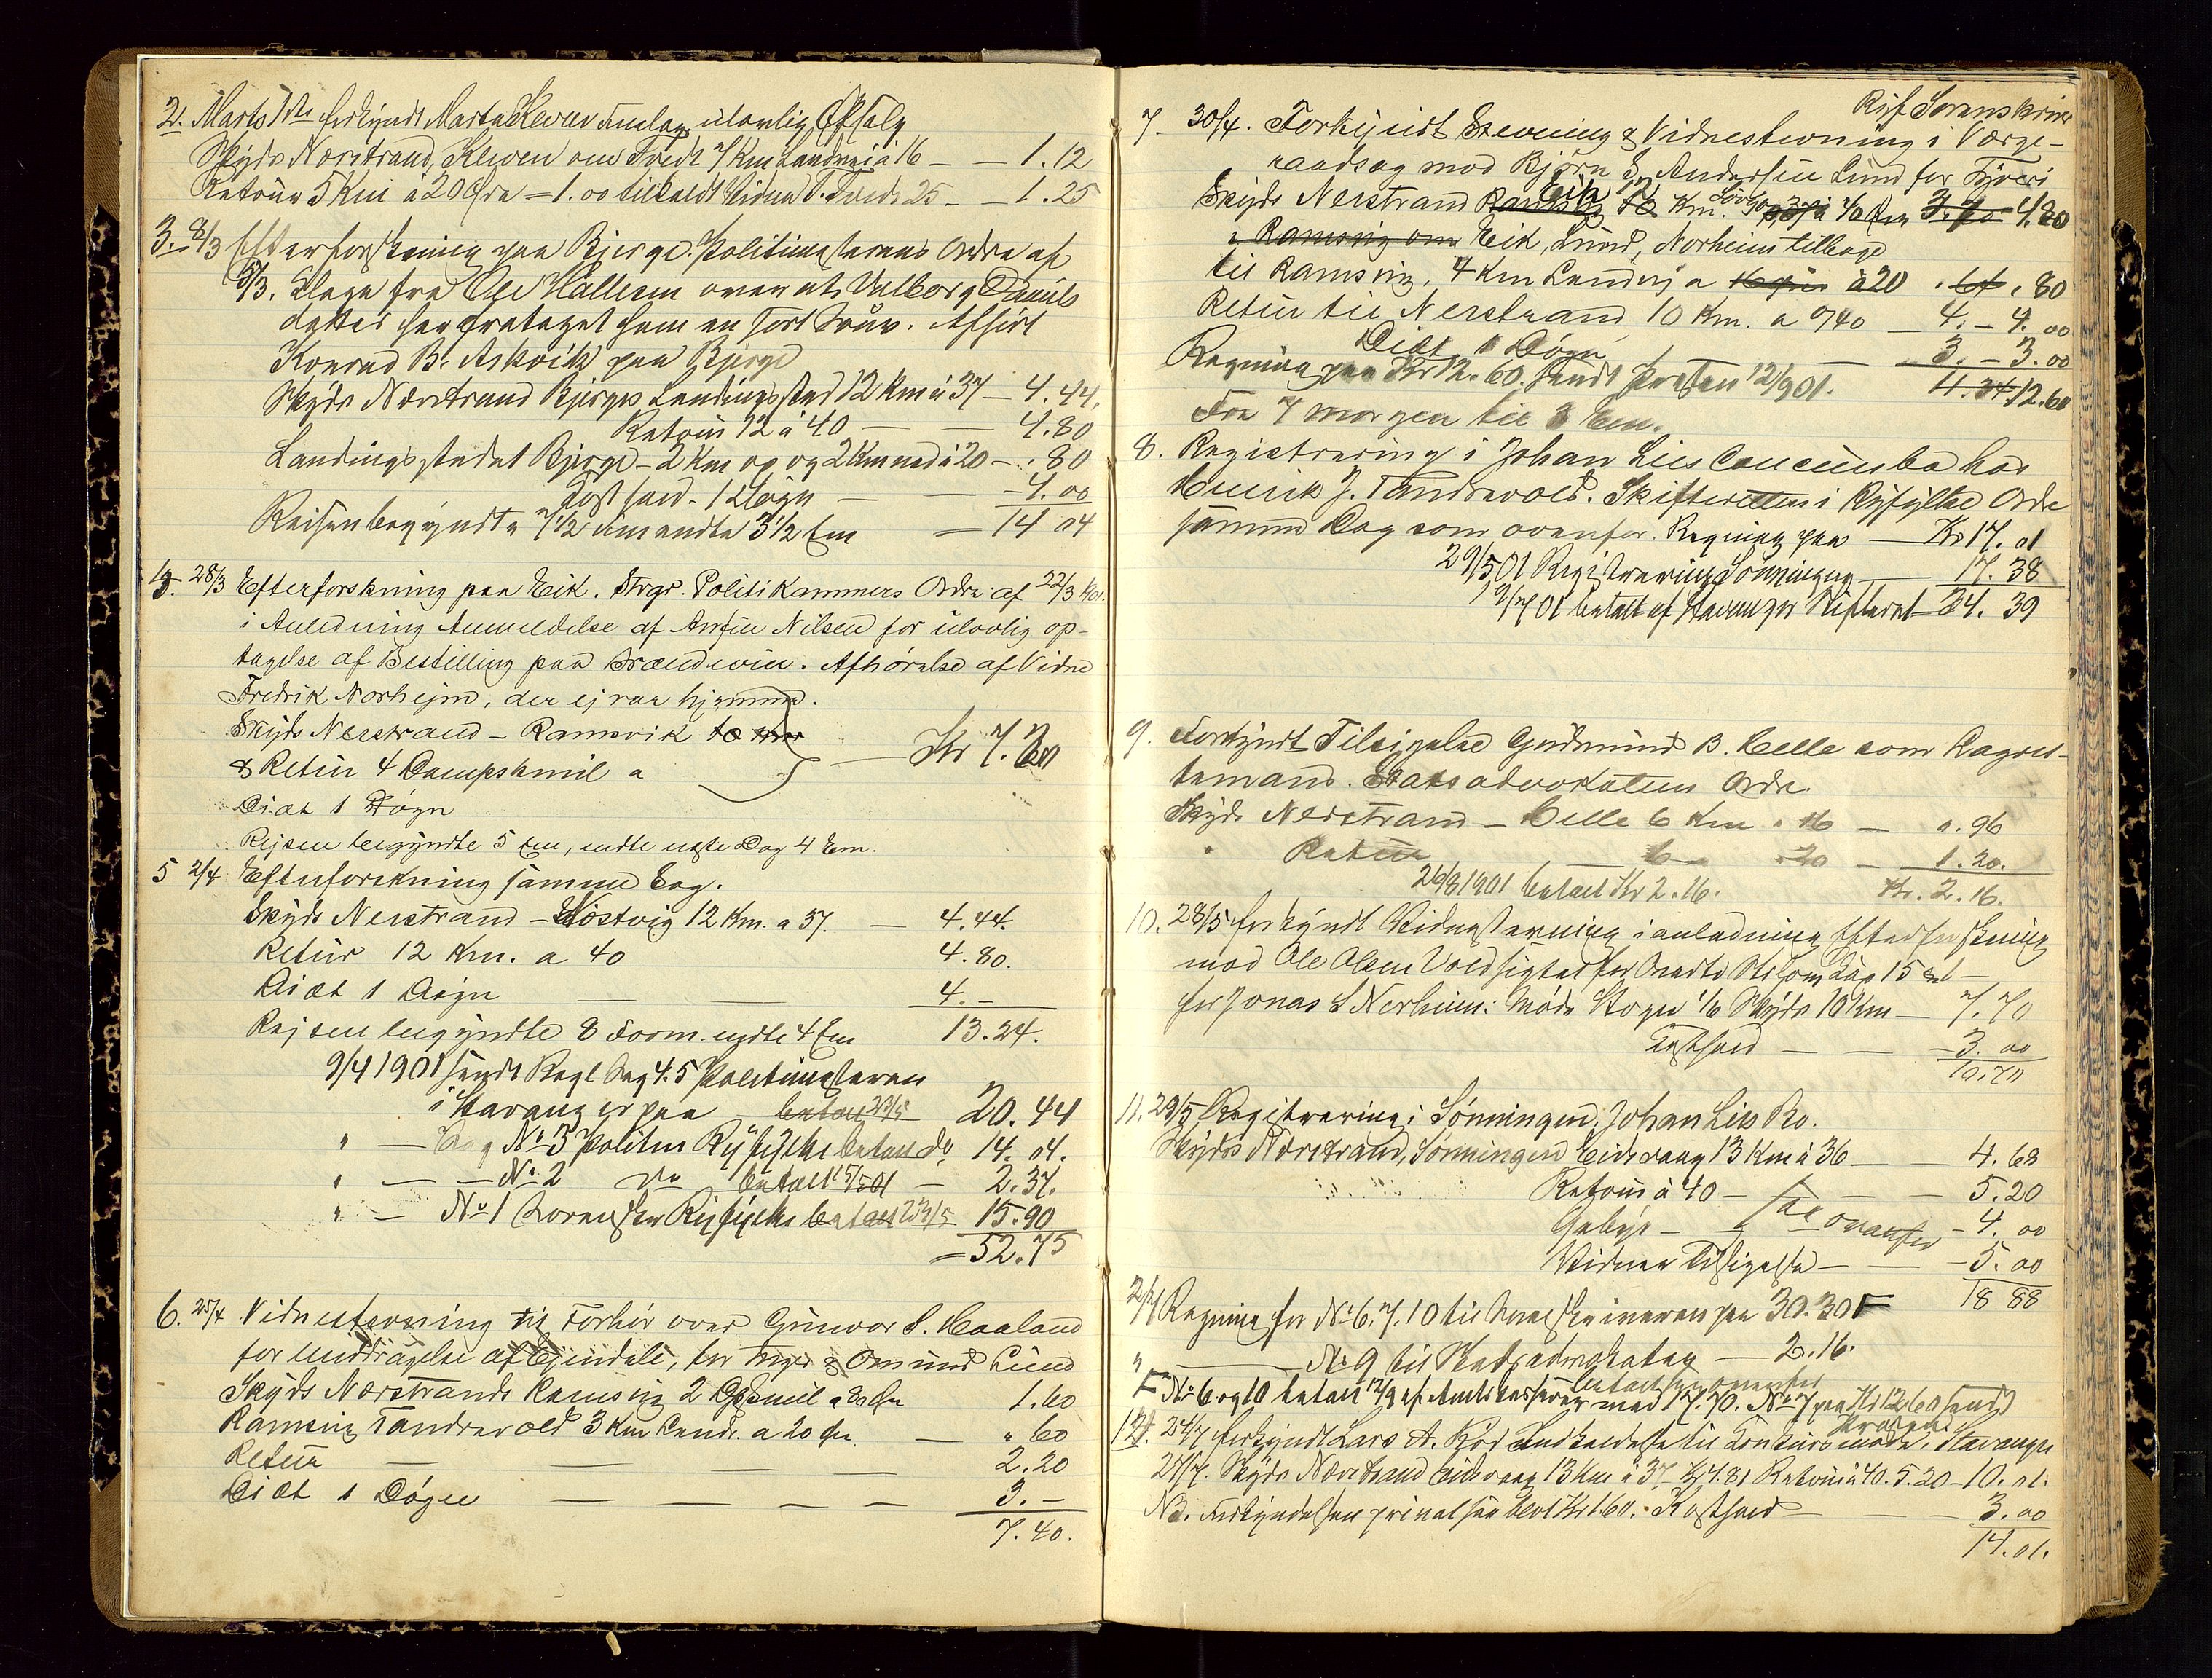 2. Marts 1ste forkyndt Marta Kleven Anlæg ulovlig Ølsalg
Skyds Nærstrand, Kleven om Tvedt 7 Km Landvei à 16 — — 1.12
Retour 5 Km à 20 Øre = 1.00 tilkaldt Vidne T. Tvedt 25 — — 1.25
3. 8/3 Efterforskning paa Bjerge. Politimesterens Ordre af
5/3. Klage fra Ole Hallesen over at Valborg Daniels
datter har frataget ham en
Konrad B. Askvik paa Bjerge
Skyds Nærstrand Bjerges Landingsstad 12 Km à 37 — 4.44.
Retour 12 à 40 — — 4.80
Landingsstedet Bjerge — 2 Km op og 2 Km ned à 20 — . 80
Kosthold — 1 Døgn — — 4.00
Reisen begyndte 7 1/2 Fm endte 3 1/2 Em = 14 04
4. 28/3 Efterforskning paa Eik. Stvgr. Politikammers Ordre af 22/3
i Anledning Anmeldelse af Nilsen for ulovlig op-
tagelse af Bestilling paa Brændevin. Afhørelse af Vidne
Fredrik Norheim, der ej var hjemme.
Skyds Nerstrand — Ramsvik
& Retur 4 Dampskmil a — Kr 7.20
Diæt 1 Døgn
Rejsen begyndte 5 Em, endte næste Dag 4 Em.
5 2/4 Efterforskning samme Sag.
Skyds Nerstrand — Østvig 12 Km. a 37. — 4.44.
Retur 12 Km. a 40 4.80.
Diæt 1 Døgn — — 4.—
Rejsen begyndte 8 Form. endte 4 Em 13.24.
9/4 1901 sendt Regl Sag 4.5 Politimesteren
i Stavanger paa betalt 23/5 20.44
" — Sag No 3 Politm Ryfylke betalt do 14.04.
" — — No 2 do betalt 15/5 01 — 2.37.
" — No 1 Sorenskr Ryfylke betalt 23/5 15.90
52.75
6. 25/4 Vidnestevning til Forhør over Gunvor S. Haaland
for unddragelse af Ejendele, for & Omund Lund
Skyds Nærstrands Ramsvig 2 Dpsmil a 80 Øre 1.60
Ramsvig Tandrevold 3 Km Landv. a 20 Øre. — " 60
Retur — — — — 2.20
Diæt 1 Døgn — — — — 3.—
7.40.
Ryf Sorenskriver
7. 30/4. Forkyndt Stevning & Vidnestevning i Værge-
raadsag mod Bjørn S. Andersen Lund for Tyveri
Skyds Nerstrand Ramsvig Eik 12 Km. a 40 Øre 3.70 4.80
a Ramsvig om Eik, Lund, Norheim tilbage
til Ramsvig. 4 Km Landvej a à 20 . 80
Retur til Nerstrand 10 Km. a 40 — 4. — 4.00
Diæt 1 Døgn — 3. — 3.00
Regning paa Kr 12.60. sendt 12/7 901. 11.24 12.60
Fra 7 morgen til 3 Em.
8. Registrering i Johan Lies Concursbo hos
Henrik J. Tandrevold. Skifteretten i Ryfylke Ordre
samme Dag som ovenfor. Regning paa — Kr 17.01
29/5 01 Registrering Sønningen — 17.38
12/7 01 betalt af Stavanger Skifteret 34.39
9. Forkyndt Tilsigelse Gudmund B. Helle som Lagret-
temand. Statsadvokatens Ordre
Skyds Nerstrand — Helle 6 Km a 16 — 0.96
" Retur 6 — 20 — 1.20.
26/8 1901 betalt Kr 2.16. Kr. 2.16.
10. 28/5 forkyndt Vidnestevning i anledning Efterforskning
mod Ole Olsen Vold sigtet for
for Jonas S Nerheim: Møde Stogn 1/6 Skyds 10 Km — 7.70
Kosthold — — 3.00
10.70
11. 29/5 Registrering i Sønningen, Johan Lies Bo.
Skyds Nærstrand, Sønningen Eidsvaag 13 Km à 36 — — 4.68
Retour à 40 — — — 5.20
Gebyr — se ovenfor — 4.00
Vidner Tilsigelse — — 5.00
18 88
2/7 Regning for No 6.7.10 til Sorenskriveren paa 30.30
" — No 9 til Statsadvokaten — 2.16.
No 6 og 10 betalt 12/9 af Amtskassereren med 17.70. No 7 paa Kr 12.60 sendt
12. 24/7 forkyndt Lars A. Rød Indkaldelse til Konkursmøde. Stavanger
27/7. Skyds Nærstrand Eidsvaag 13 Km à 37 Kr 4.81 Retour à 40. 5.20 — 10.01.
NB. Forkyndelsen Kr 1.60. Kosthold — — 3.00
14.01.